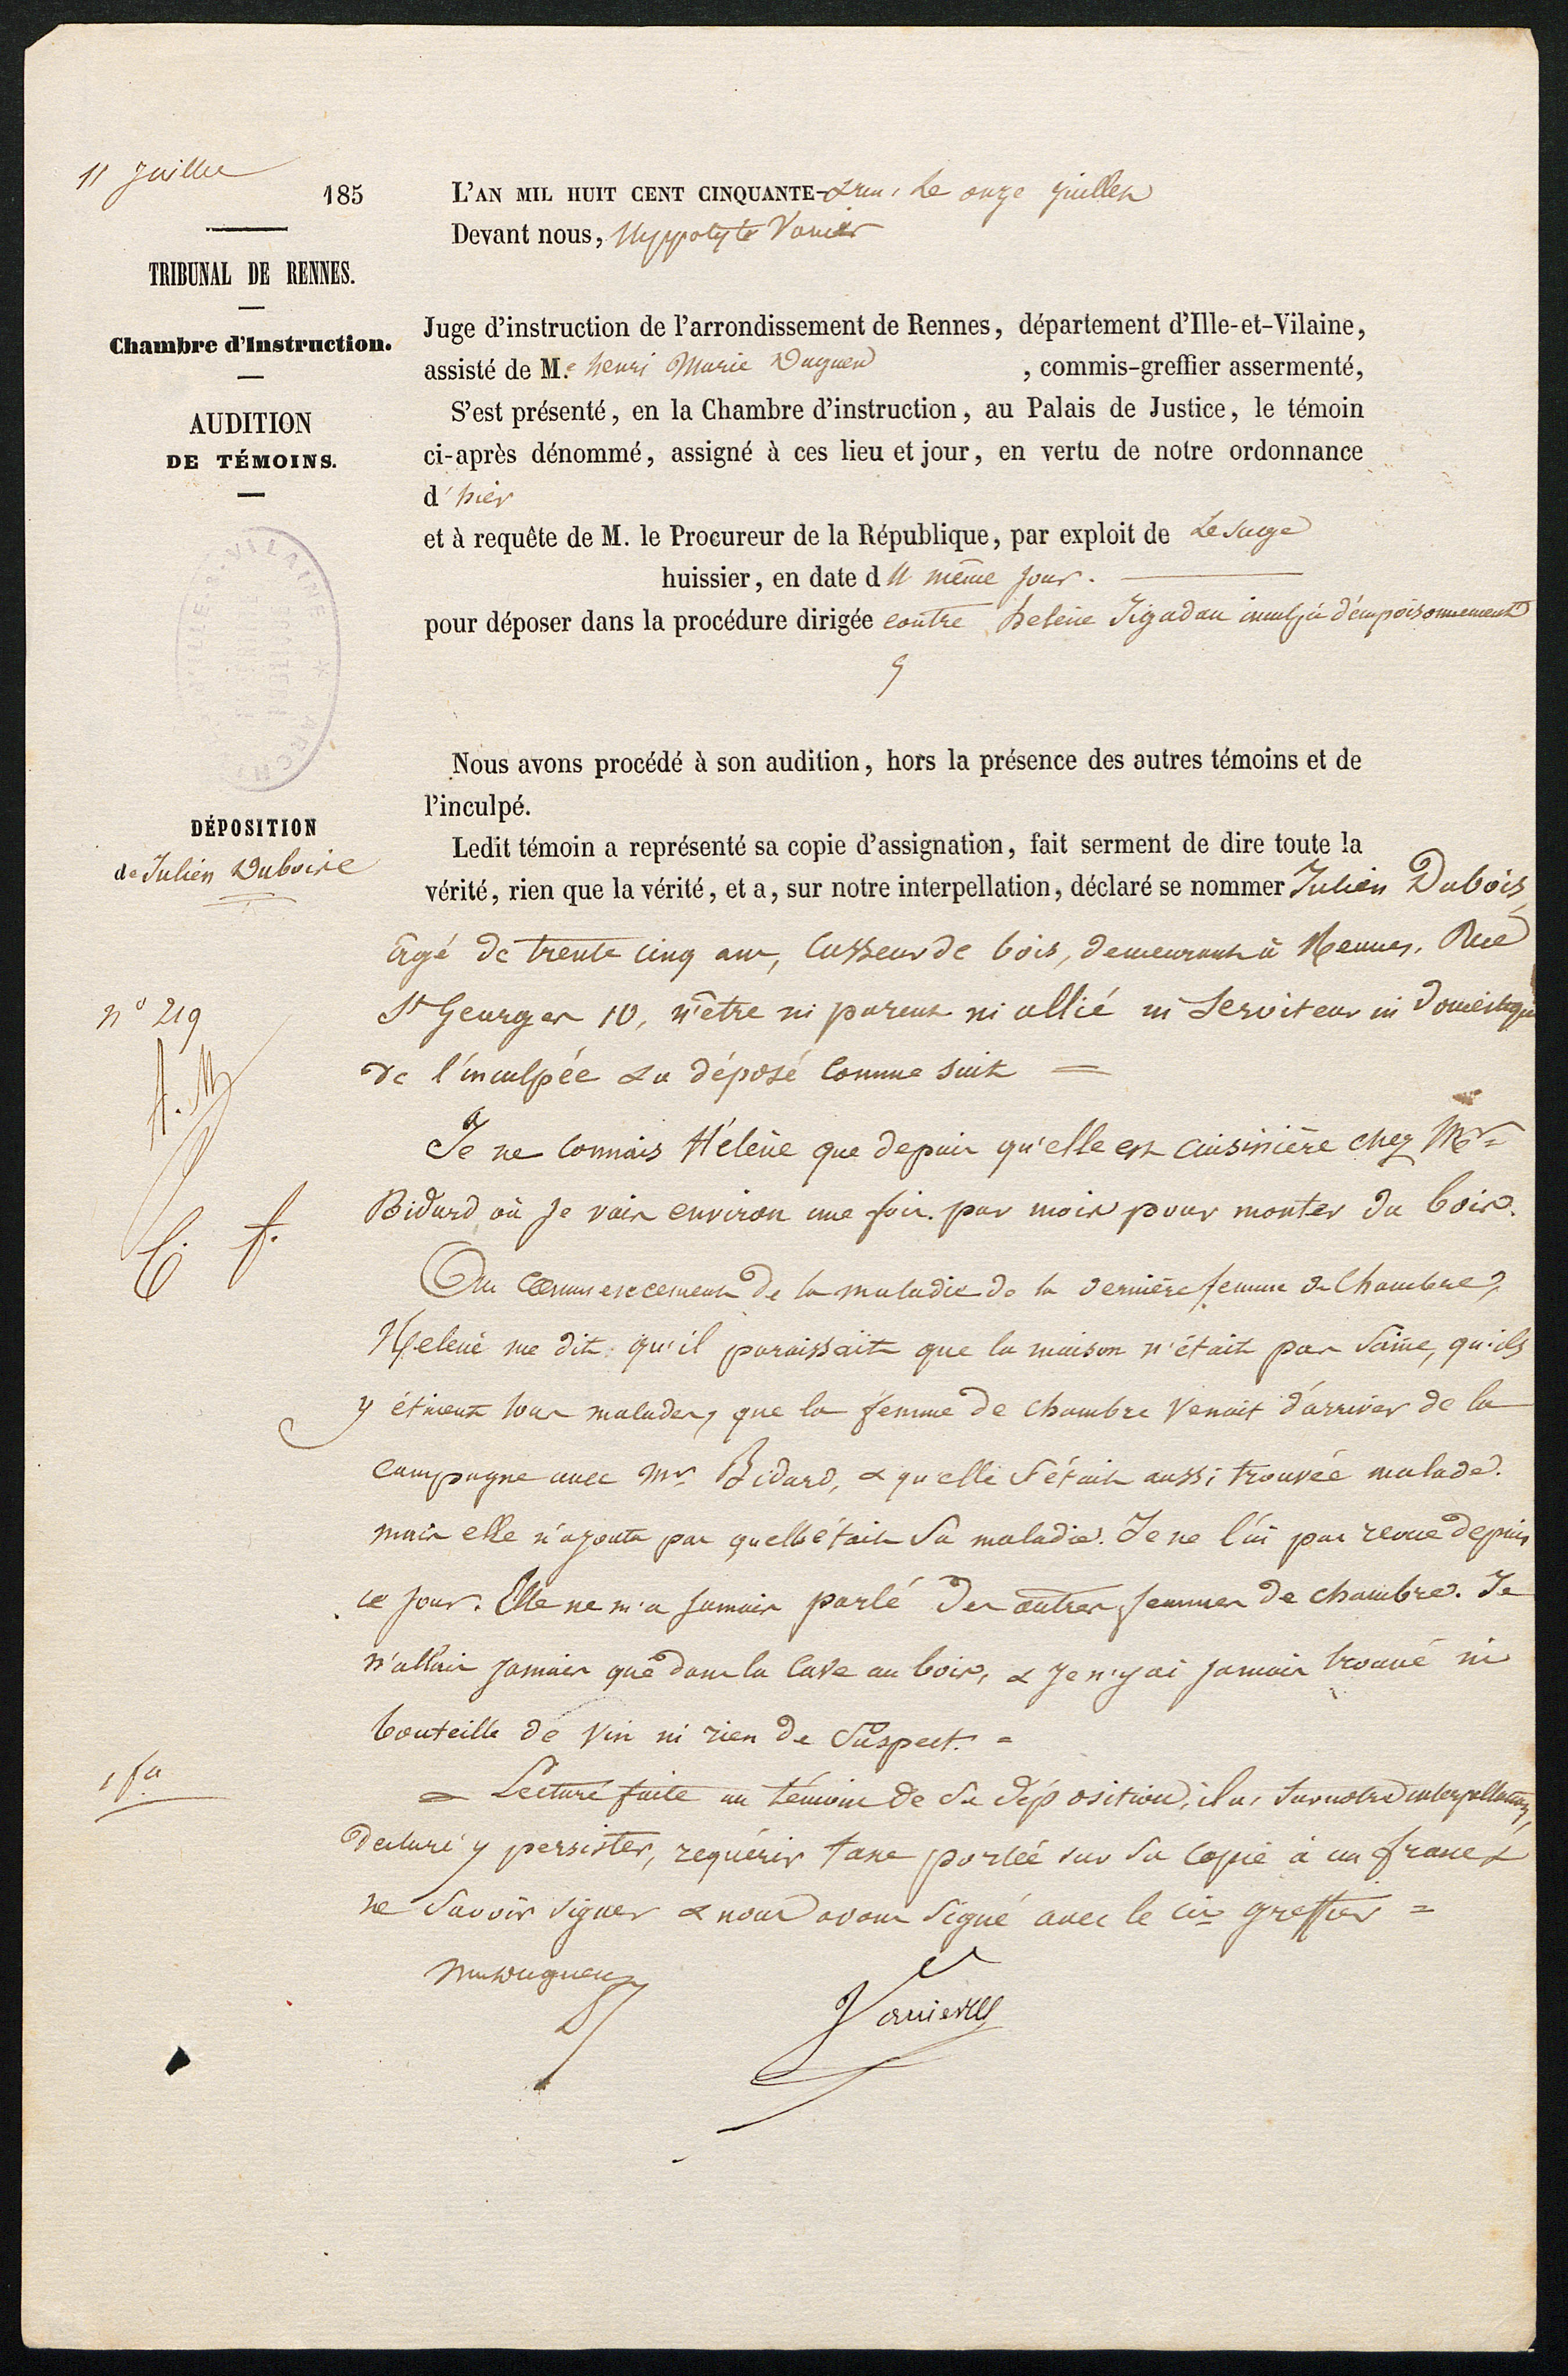 11 Juillet
185
TRIBUNAL DE RENNES.
Chambre d'Instruction.
AUDITION
DE TÉMOINS.
L'AN MIL HUIT CENT CINQUANTE-& un, le onze juillet
Devant nous, Hyppolyte Vanier
Juge d'instruction de l'arrondissement de Rennes, département d'Ille-et-Vilaine,
assisté de M.e henri Marie Duguen , commis-greffier assermenté,
S'est présenté, en la Chambre d'instruction, au Palais de Justice, le témoin
ci-après dénommé, assigné à ces lieu et jour, en vertu de notre ordonnance
d'hier
et à requête de M. le Procureur de la République, par exploit de Lesage
huissier, en date du même jour.
pour déposer dans la procédure dirigée contre helene Jégadau d'empoisonnement
Nous avons procédé à son audition, hors la présence des autres témoins et de
l'inculpé.
DÉPOSITION
de Julien Duboise
Ledit témoin a représenté sa copie d'assignation, fait serment de dire toute la
vérité, rien que la vérité, et a, sur notre interpellation, déclaré se nommer Julien Dubois,
âgé de trente cinq ans, casseur de bois, demeurant à Rennes, Rue
St Georges 10, n'être ni parent ni allié ni serviteur ni domestique
de l'inculpée & a déposé comme suit =
n° 219
Je ne connais Hélène que depuis qu'elle est cuisinière chez Mr
Bidard où je vais environ une fois par mois pour monter du bois.
Au commencement de la maladie de la dernière femme de Chambre,
Helene me dit qu'il paraissait que la maison n'était pas saine, qu'ils
y étaient tous malades, que la femme de chambre venait d'arriver de la
campagne avec Mr Bidard, & qu'elle s'était aussi trouvée malade.
mais elle n'ajouta pas quelle était sa maladie. Je ne l'ai pas revue depuis
ce jour. Elle ne m'a jamais parlé des autres femmes de chambre. Je
n'allais jamais que dans la cave au bois, & je n'y ai jamais trouvé ni
bouteille de vin ni rien de suspect. =
1 f.
= Lecture faite au témoin de sa déposition, il a, sur notre interpellation,
declaré y persister, requérir taxe portée sur sa copie à un franc &
ne savoir signer & nous avons signé avec le cis greffier =
Duguen
Vanier